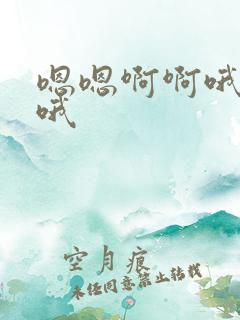 嗯嗯啊啊哦
哦
空月痕
未经同意禁止转载